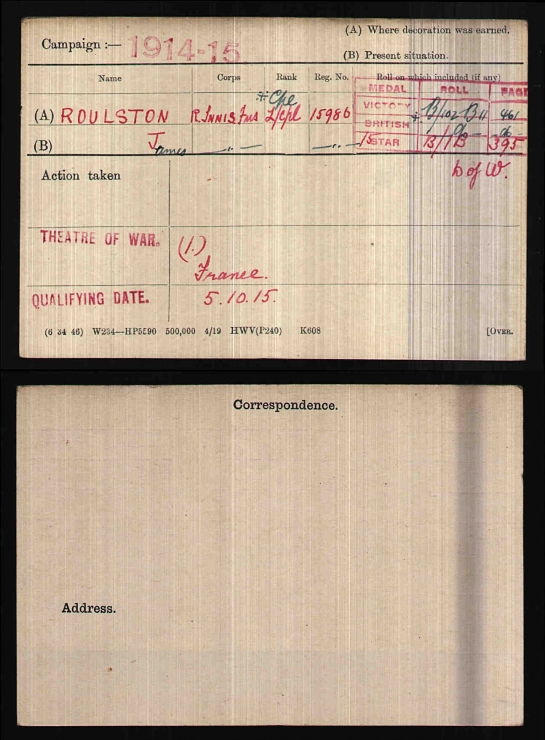 (A) Where decoration was earned.
Campaign :— 1914-15.
(B) Present situation.
Name Corps Rank Reg. No. Roll on which included (if any)
MEDAL ROLL PAGE
*Cpl
(A) ROULSTON R Innis Fus L/Cpl 15986 VICTORY * B/102 B11 961
BRITISH -do- -do-
(B) James —„— —„— 15 STAR B/1B 395
Action taken D of W.
THEATRE OF WAR. (1.)
France.
QUALIFYING DATE. 5.10.15.
(6 34 46) W234—HP5590 500,000 4/19 HWV(P240) K608 [OVER.
Correspondence.
Address.